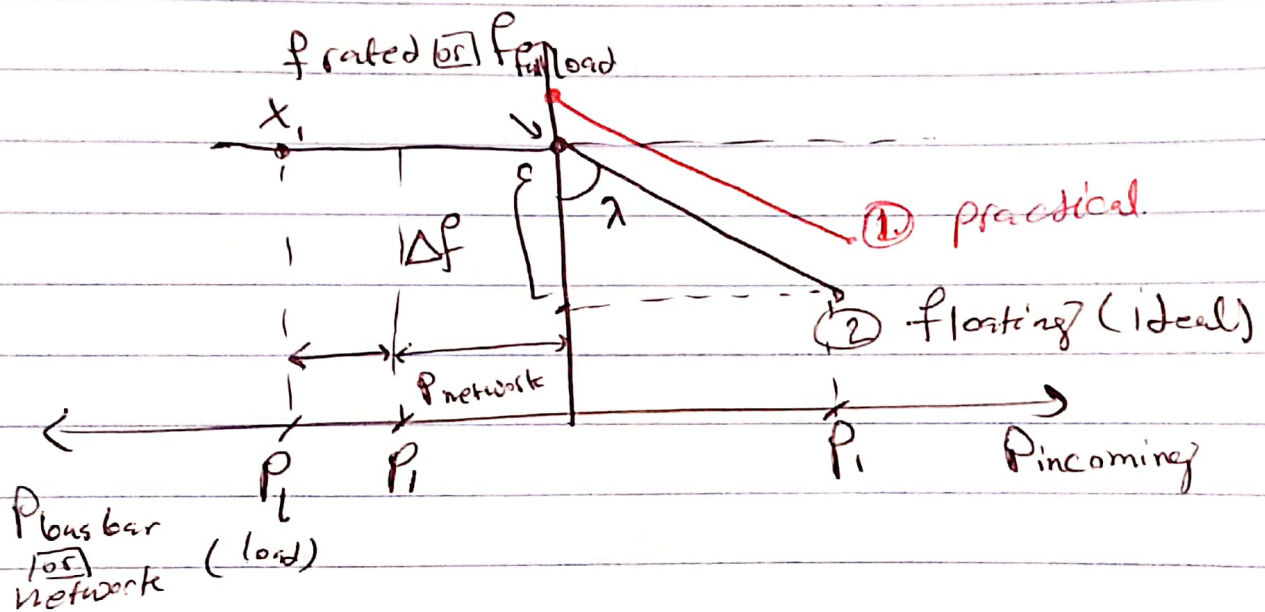 f rated or f full load
X₁
ε
λ
Δf
① practical.
② floating (ideal)
Pnetwork
PL
P₁
P₁
Pincoming
Pbus bar
or
network
(load)